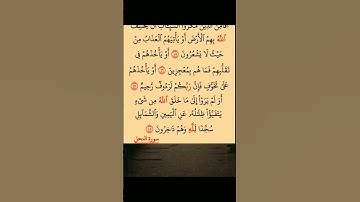 أَفَأَمِنَ الَّذِينَ مَكَرُوا السَّيِّئَاتِ أَن يَخْسِفَ
اللَّهُ بِهِمُ الْأَرْضَ أَوْ يَأْتِيَهُمُ الْعَذَابُ مِنْ
حَيْثُ لَا يَشْعُرُونَ ۝ أَوْ يَأْخُذَهُمْ فِي
تَقَلُّبِهِمْ فَمَا هُم بِمُعْجِزِينَ ۝ أَوْ يَأْخُذَهُمْ
عَلَىٰ تَخَوُّفٍ فَإِنَّ رَبَّكُمْ لَرَءُوفٌ رَّحِيمٌ ۝
أَوَلَمْ يَرَوْا إِلَىٰ مَا خَلَقَ اللَّهُ مِن شَيْءٍ
يَتَفَيَّؤُا ظِلَالُهُ عَنِ الْيَمِينِ وَالشَّمَائِلِ
سُجَّدًا لِّلَّهِ وَهُمْ دَاخِرُونَ ۝
سورة النحل